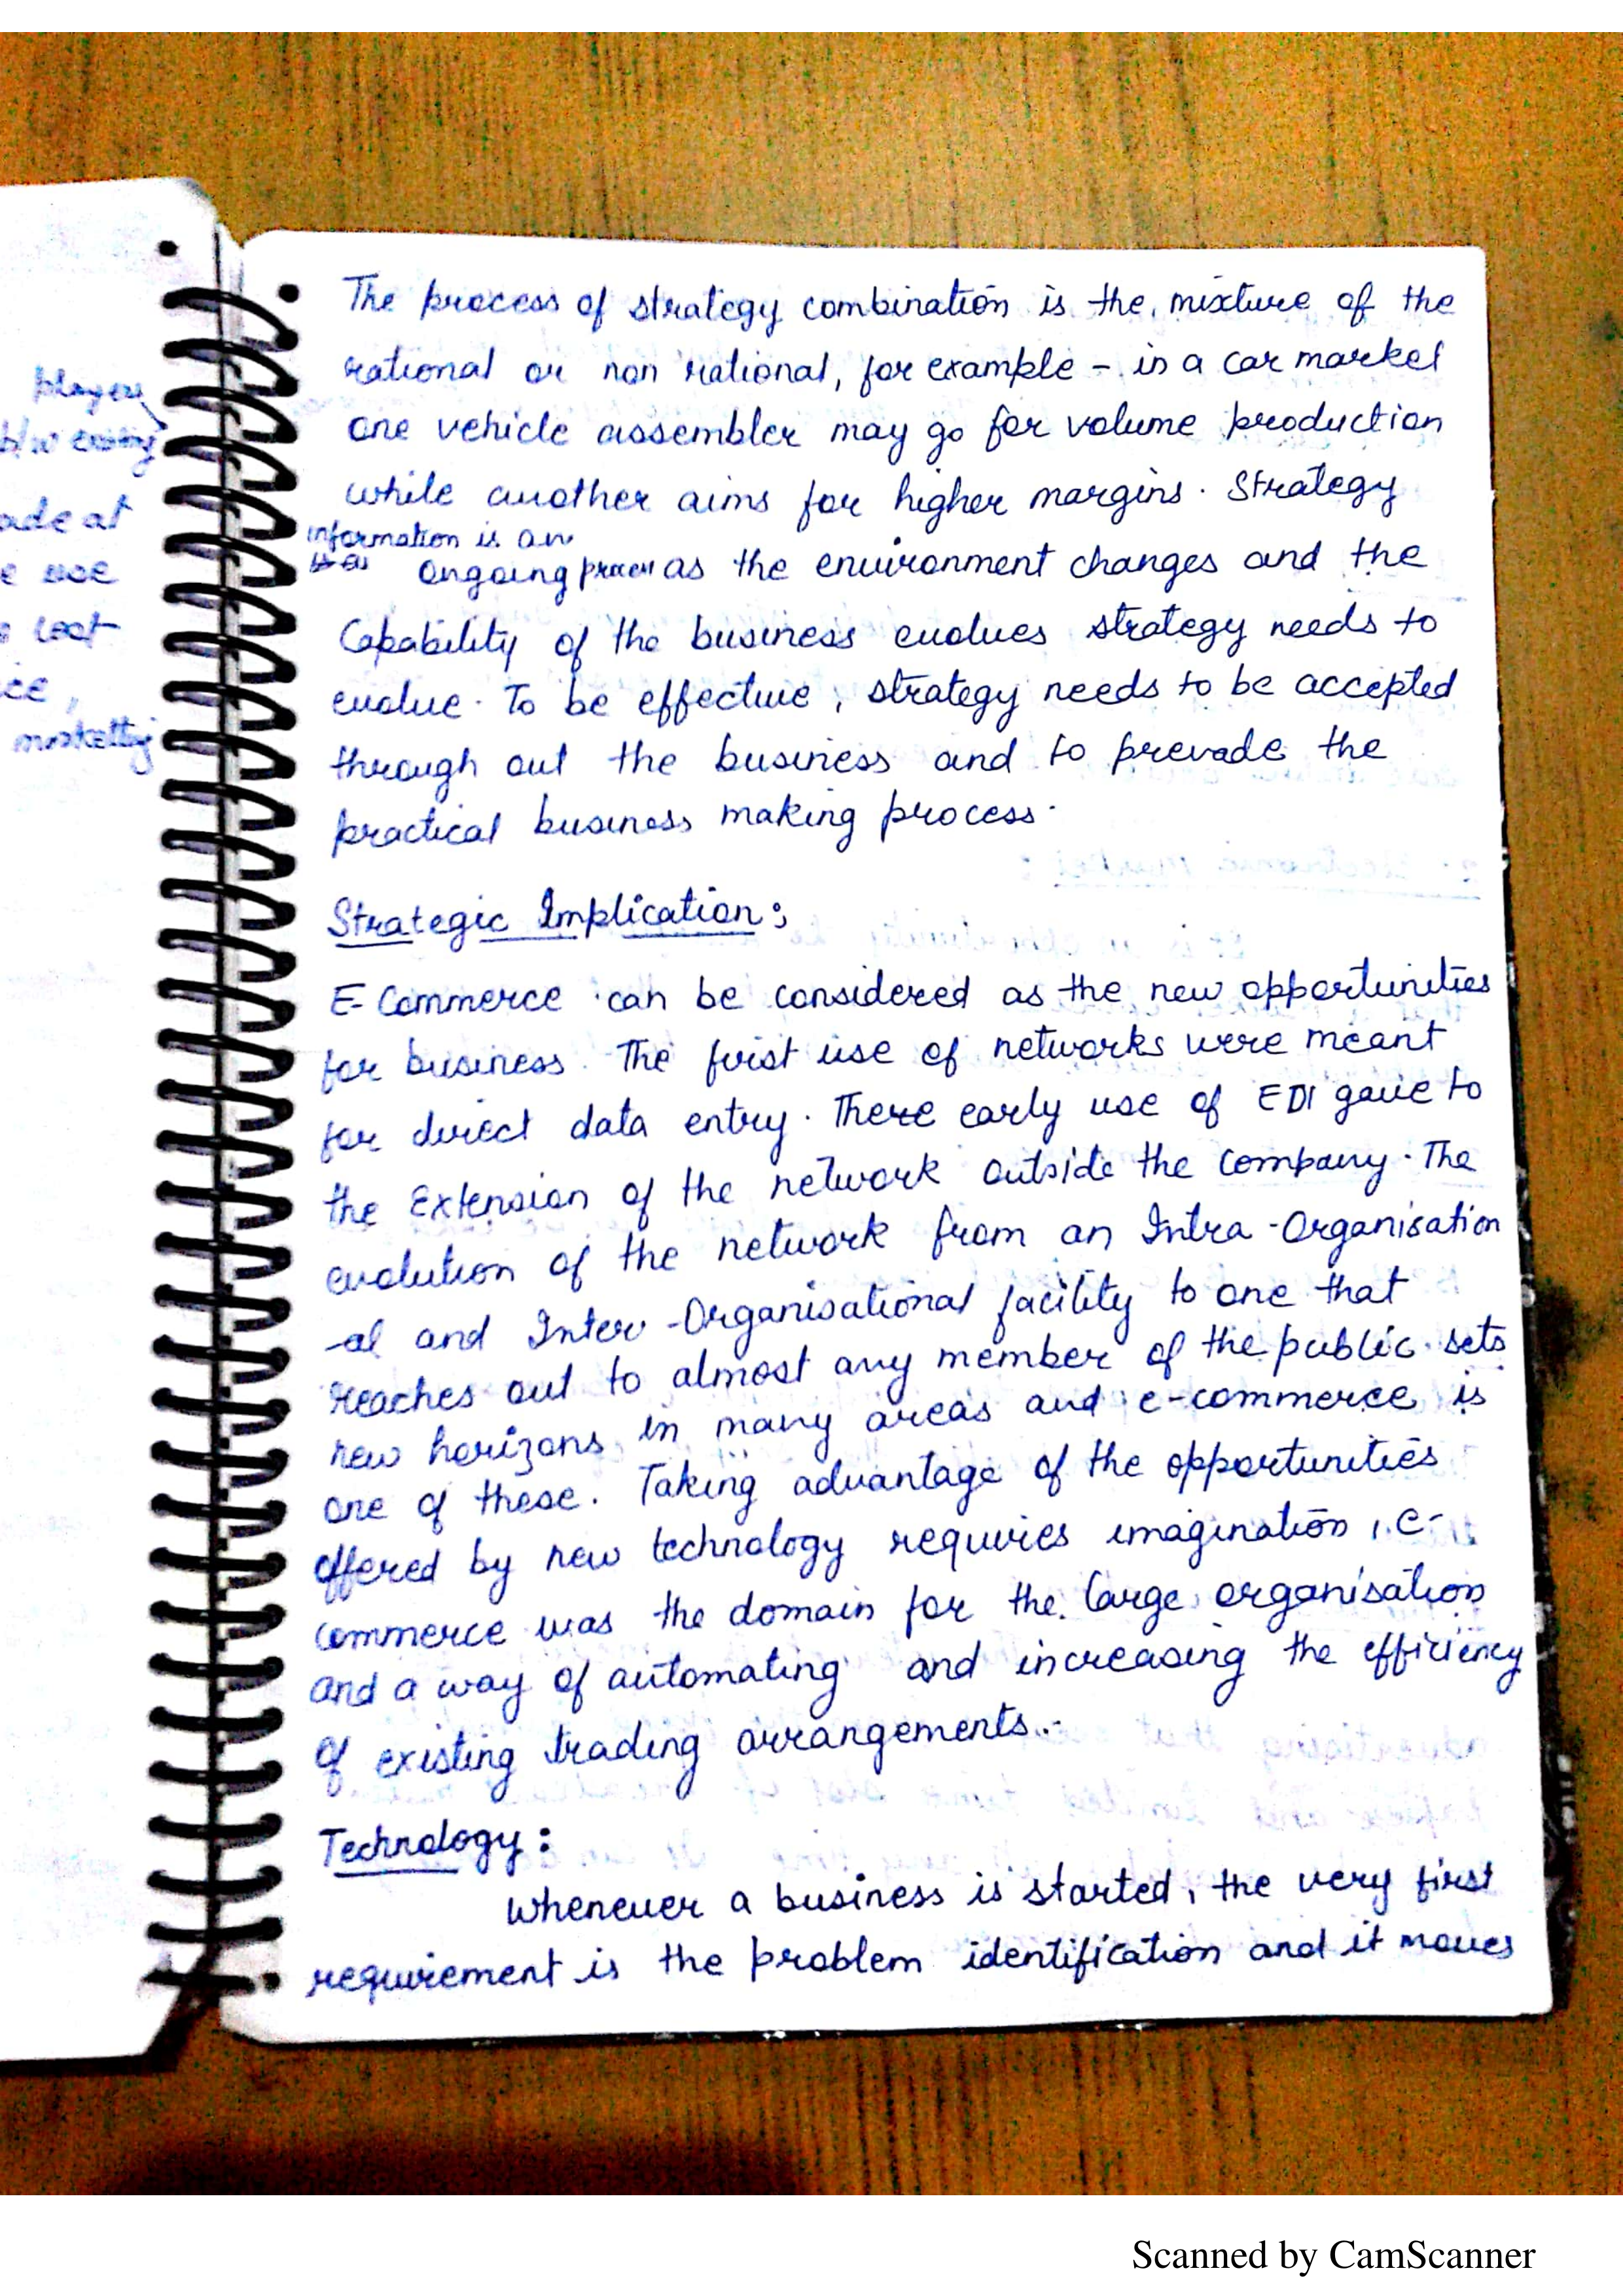 players
b/w existing
ade at
e use
cost
ce,
The process of strategy combination is the mixture of the
rational or non rational, for example - in a car market
one vehicle assembler may go for volume production
while another aims for higher margins. Strategy
information is an
ongoing process as the environment changes and the
Capability of the business evolves strategy needs to
evolve. To be effective, strategy needs to be accepted
through out the business and to prevade the
practical business making process.
Strategic Implication:
E-Commerce can be considered as the new opportunities
for business. The first use of networks were meant
for direct data entry. There early use of EDI gave to
the Extension of the network outside the company. The
evolution of the network from an Intra-Organisation
-al and Inter-Organisational facility to one that
reaches out to almost any member of the public sets
new horizons in many areas and e-commerce is
one of these. Taking advantage of the opportunities
offered by new technology requires imagination, e-
commerce was the domain for the large organisation
and a way of automating and increasing the efficiency
of existing trading arrangements.
Technology:
Whenever a business is started, the very first
requirement is the problem identification and it moves
Scanned by CamScanner